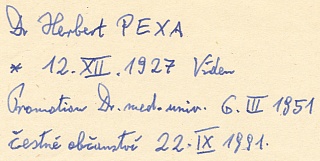 Dr Herbert PEXA
* 12. XII. 1927 Víden
Promotion Dr. med. univ. 6. III 1951
čestné občanství 22. IX 1991.